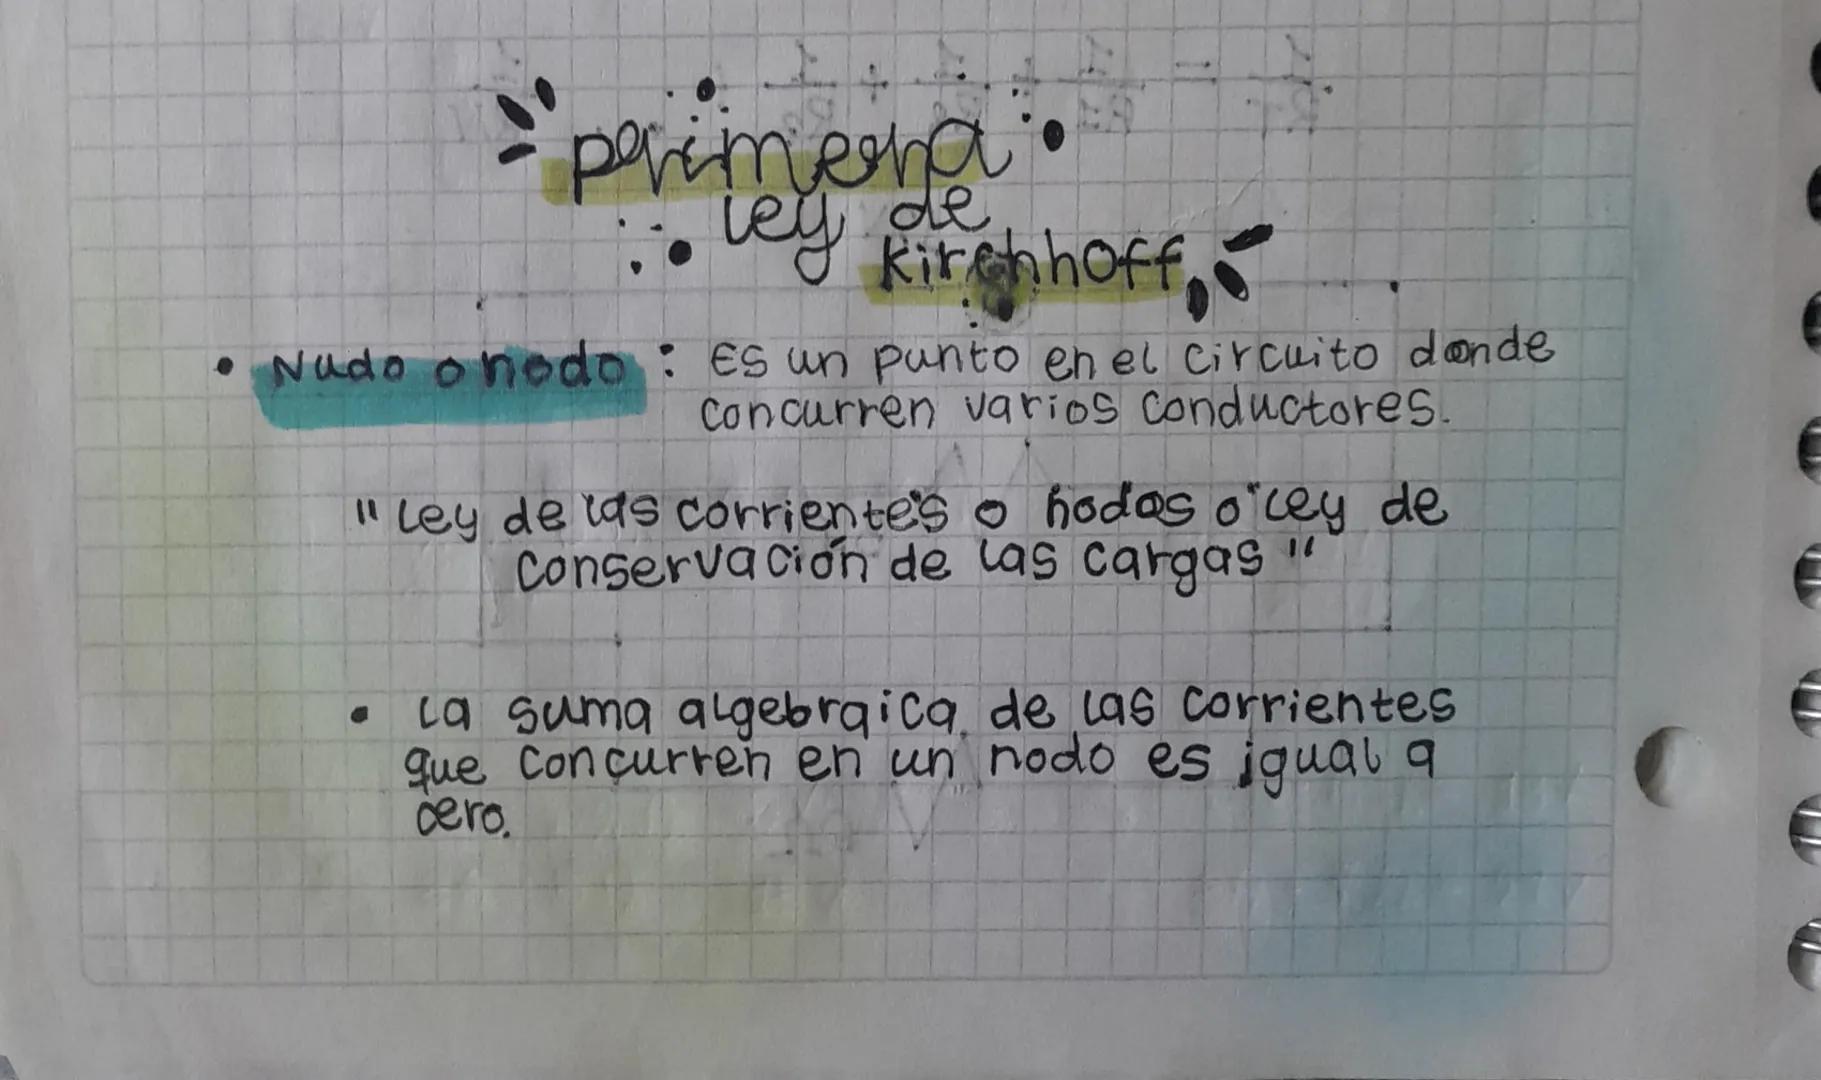 primera
ley de
kirchhoff
• Nudo o nodo : Es un punto en el circuito donde
concurren varios conductores.
"Ley de las corrientes o nodos o Ley de
conservación de las cargas"
• La suma algebraica de las corrientes
que concurren en un nodo es igual a
cero.